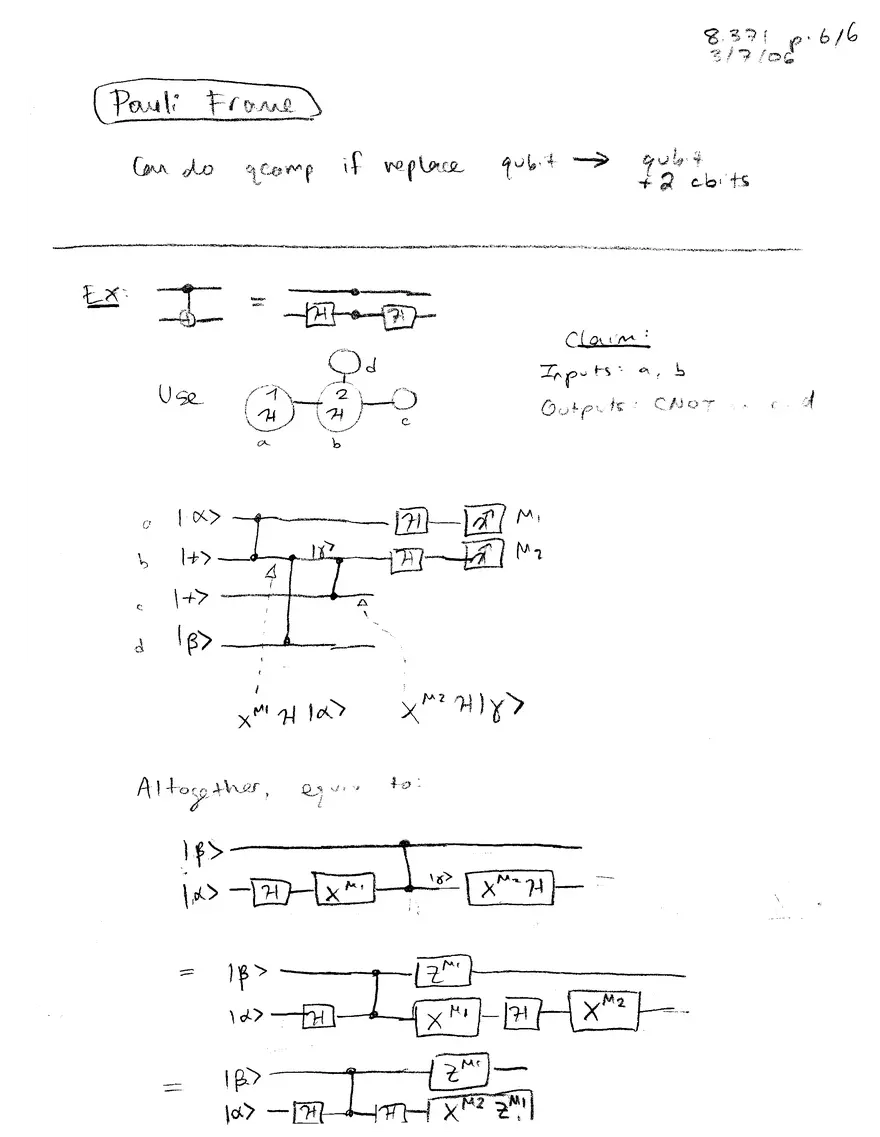 8.371 p. 6/6
3/7/06
Pauli Frame
Can do qcomp if replace qubit → qubit
+ 2 cbits
Ex:
=
H H
Claim:
Inputs: a, b
Outputs: CNOT c, d
Use
1 H
2 H
d
a b c
a |α> H M1
b |+> |γ> H M2
c |+>
d |β>
X^M1 H |α> X^M2 H |γ>
Altogether, equiv to:
|β>
|α> H X^M1 |γ> X^M2 H =
= |β> Z^M1
|α> H X^M1 H X^M2
= |β> Z^M1
|α> H H X^M2 Z^M1